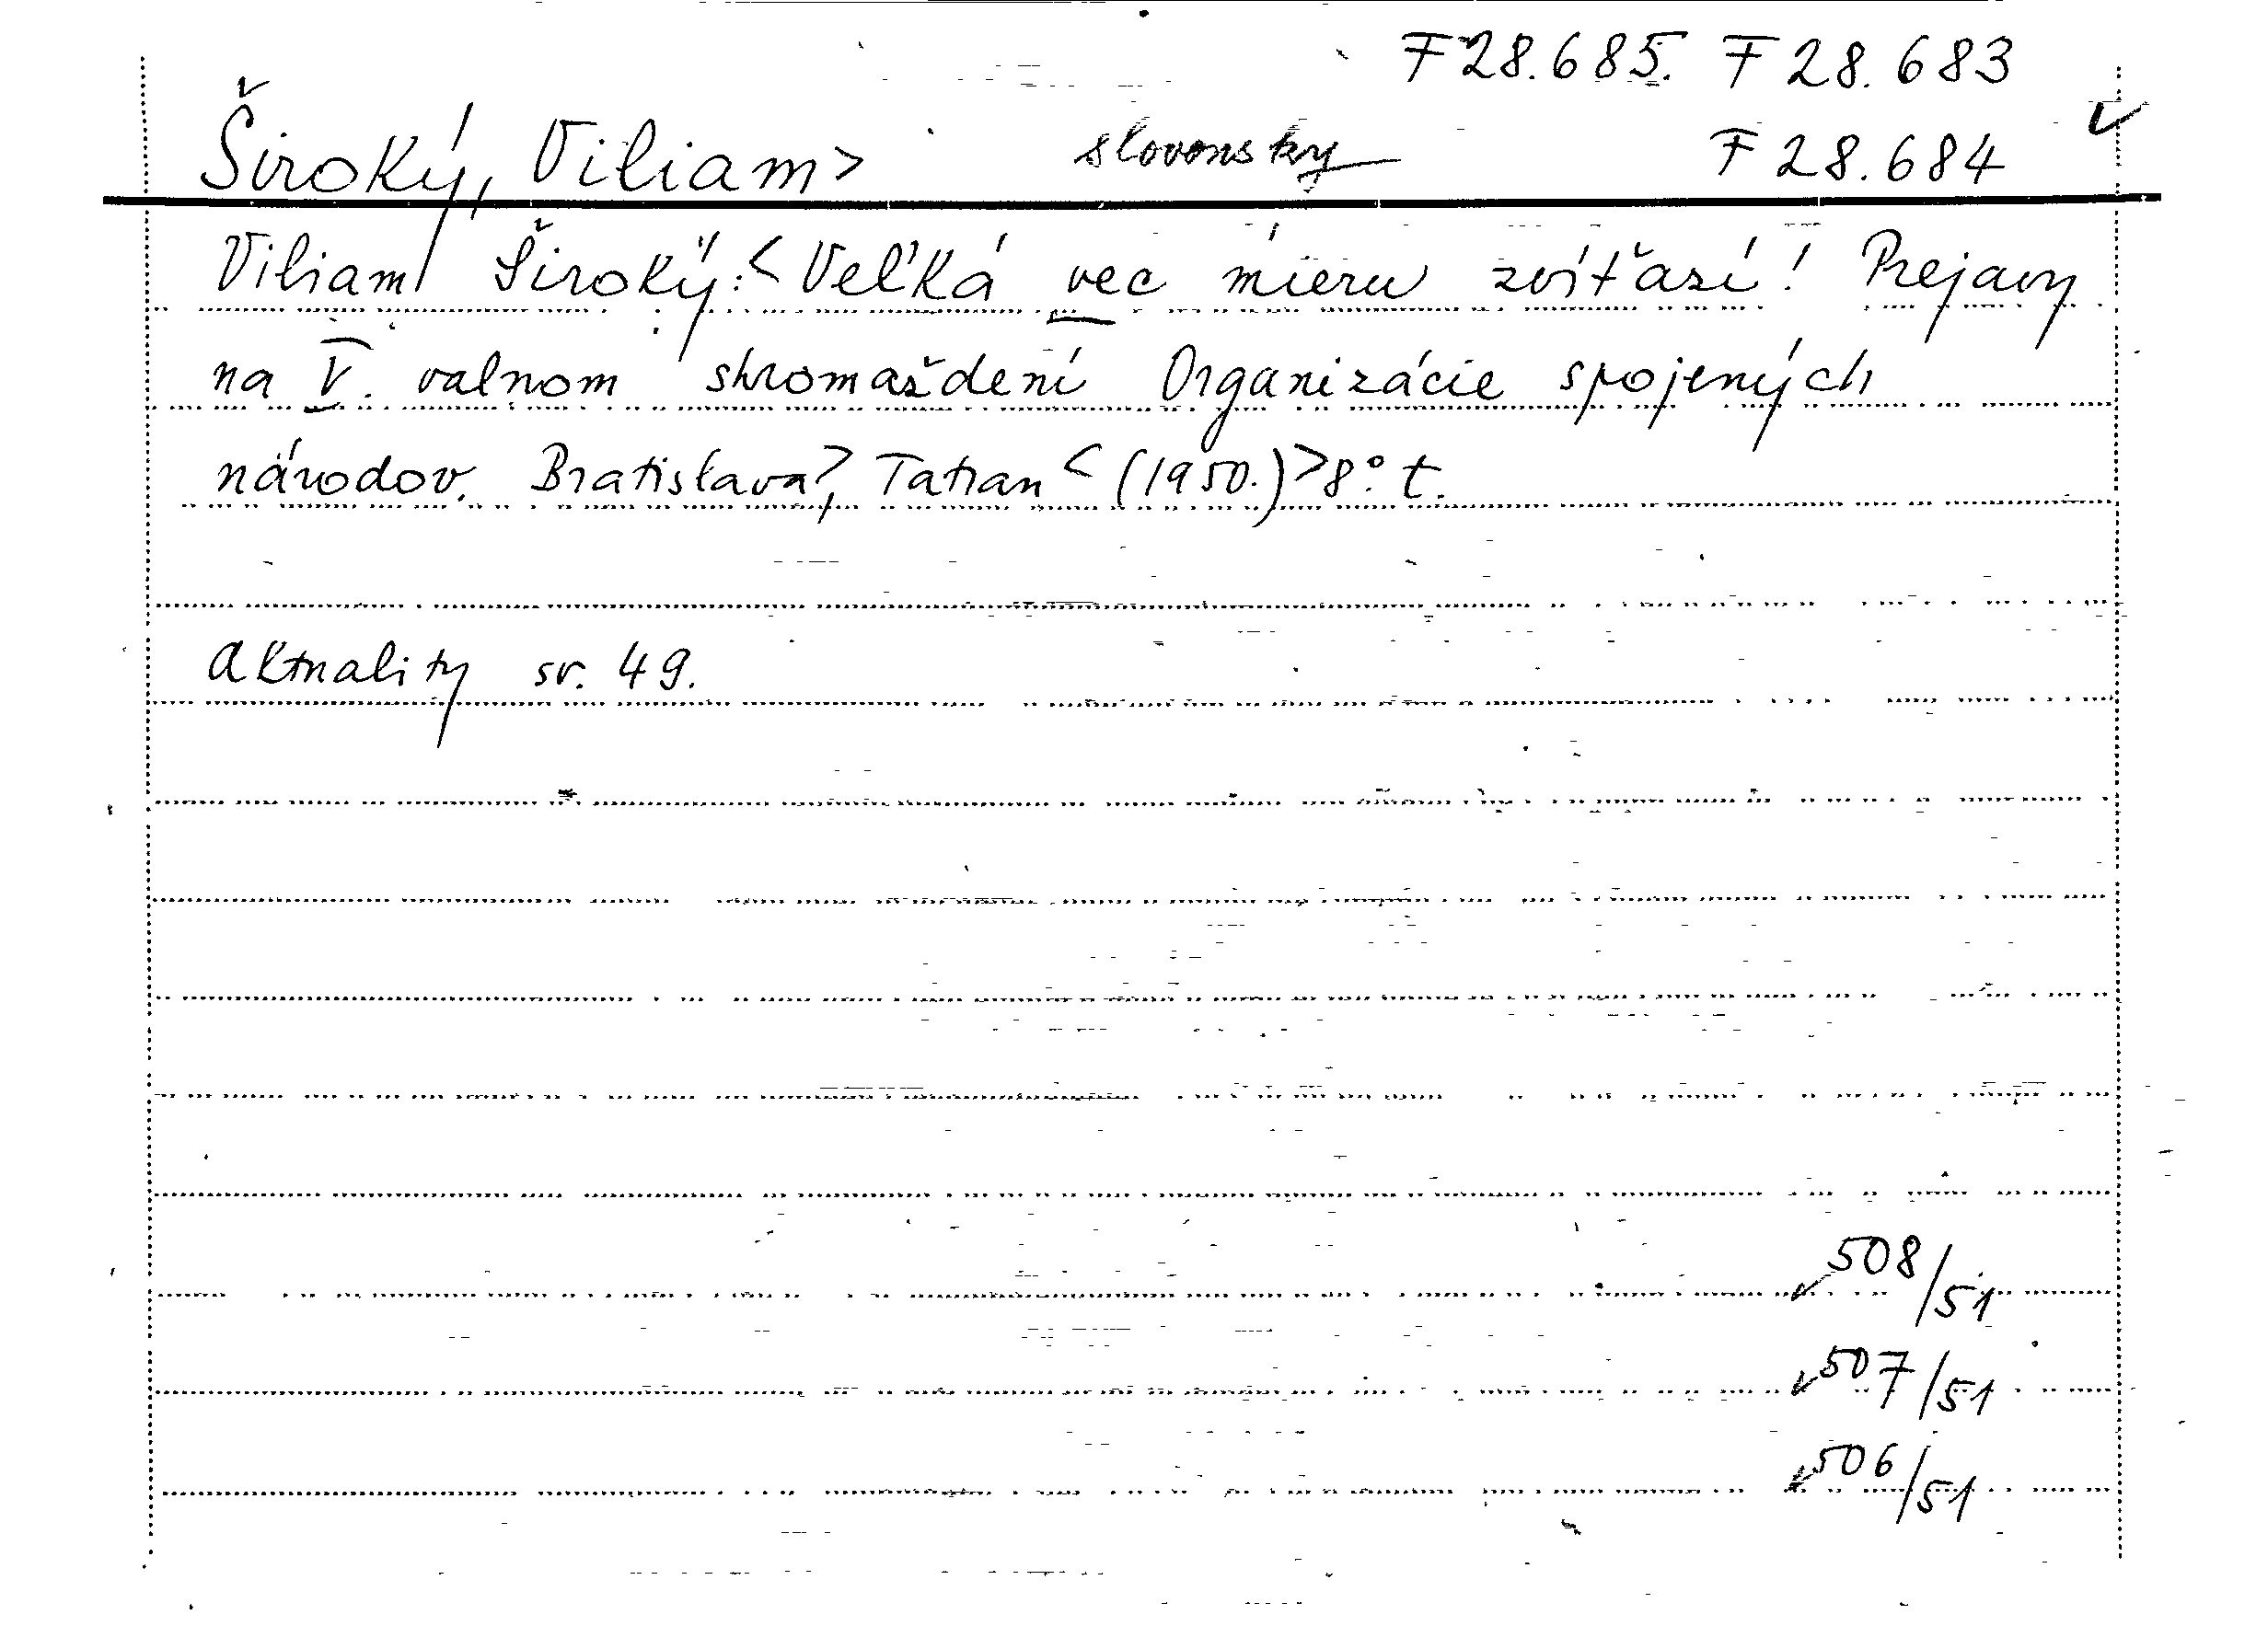 F 28.685. F 28.683
Široký, Viliam> slovensky F 28.684
Viliam Široký:< Veľká vec mieru zvíťazí! Prejavy
na V. valnom shromaždení Organizácie spojených
národov. Bratislava>, Tatran <(1950.)> 8°. t.
Aktuality sv. 49.
508/51
507/51
506/51